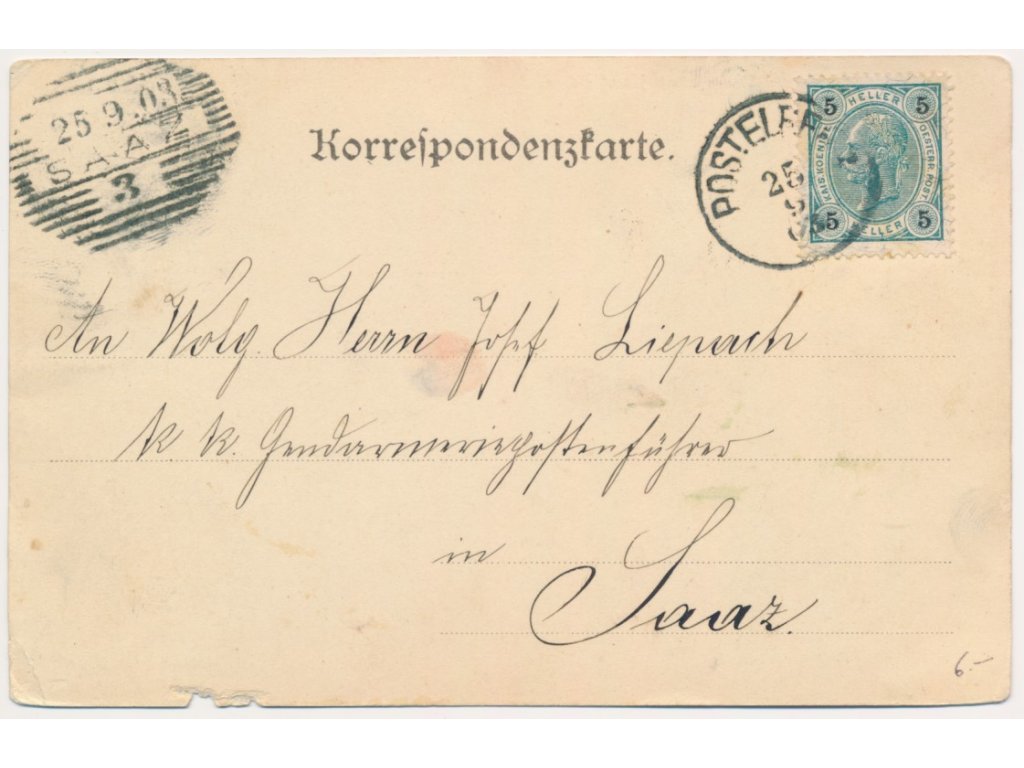 25 9.03
SAAZ
3
Korrespondenzkarte.
25
9
5 HELLER 5
KAIS. KOENIGL. OESTERR. POST.
5 HELLER 5
An Wolg. Herrn Josef Liepach
k. k. Gendarmeriepostenführer
in
Saaz.
6.-